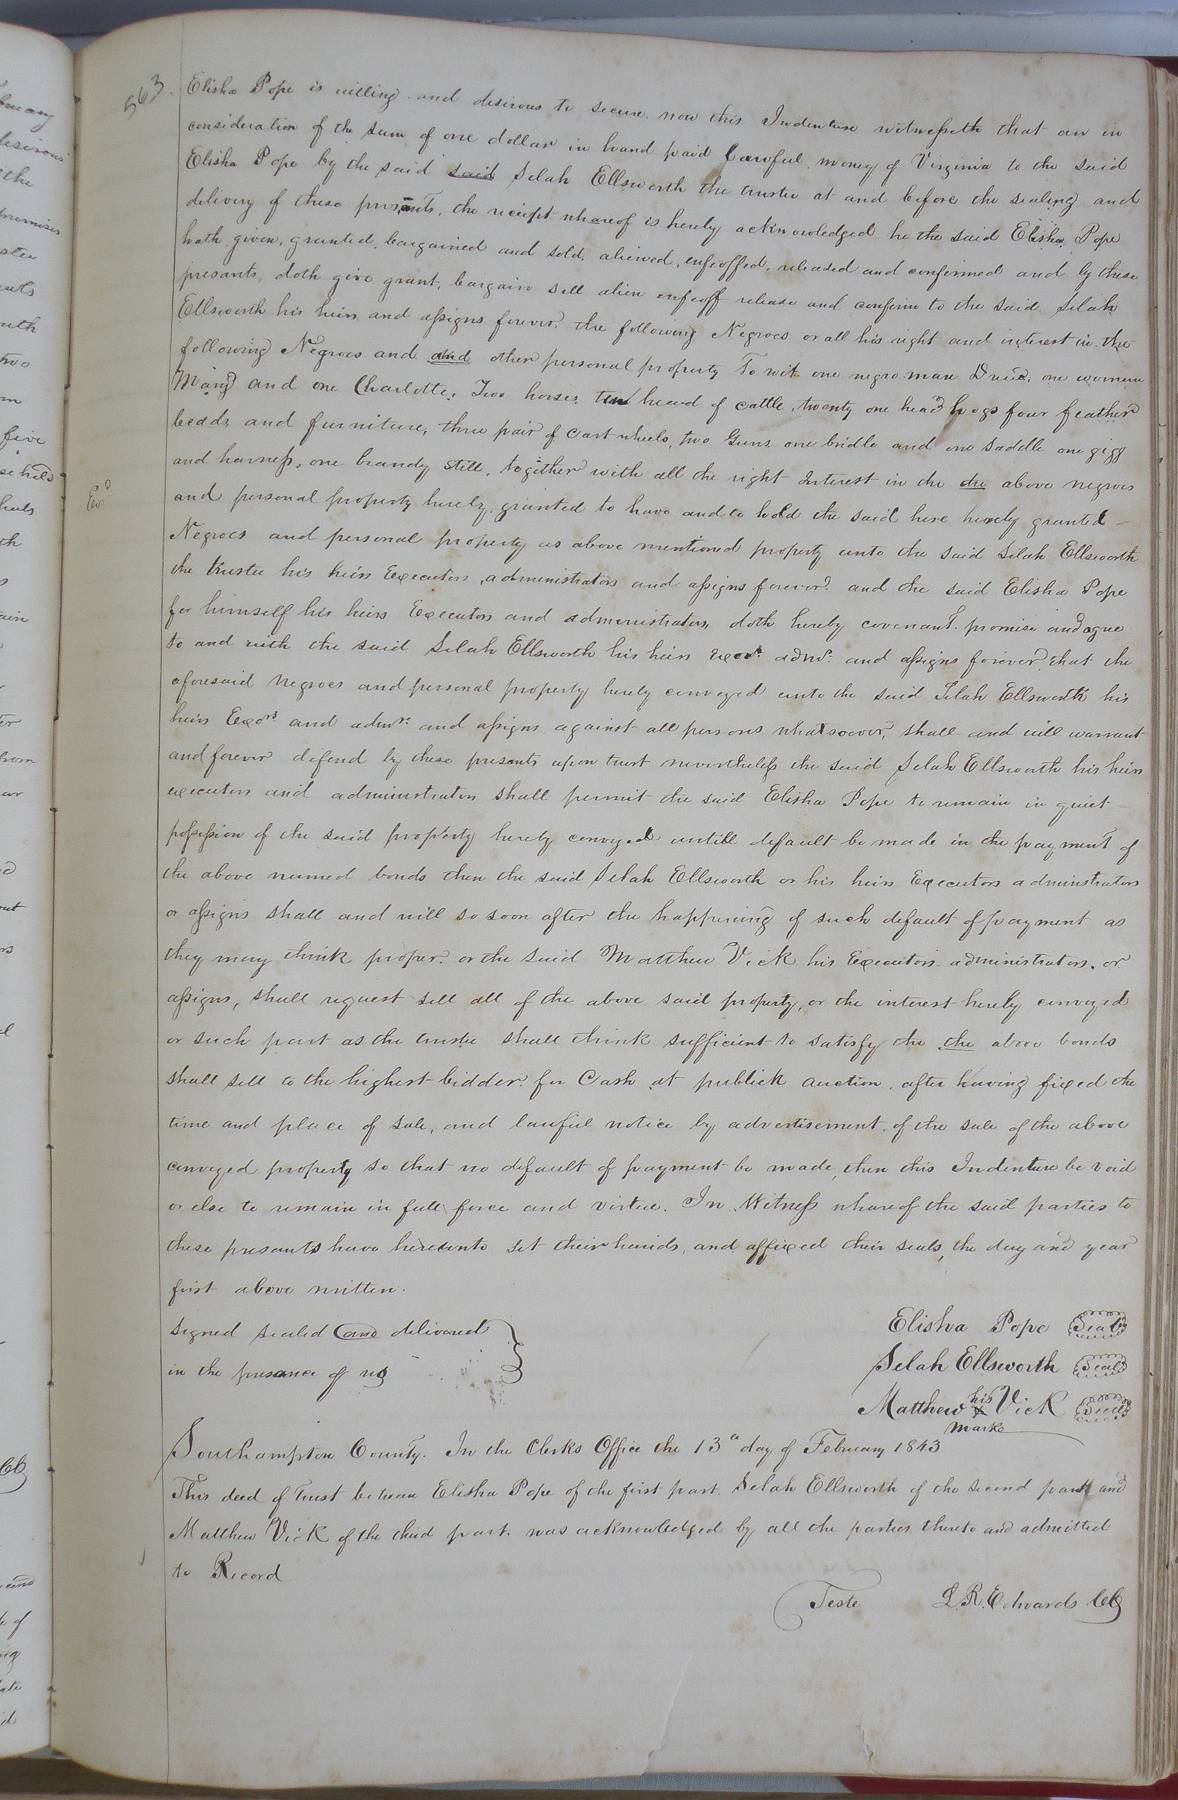 563.
Elisha Pope is willing and desirous to secure now this Indenture witnesseth that an in
consideration of the sum of one dollar in hand paid Lawful money of Virginia to the said
Elisha Pope by the said said Selah Ellsworth the trustee at and before the sealing and
delivery of these presents, the receipt whareof is hereby acknowledged he the said Elisha Pope
hath given, granted, bargained and sold, aliened, enfeoffed, released and confirmed and by these
presants, doth give grant, bargain sell alien enfeoff release and confirm to the said Selah
Ellsworth his heirs and assigns forever the following Negroes or all his right and interest in the
following Negroes and and other personal property To wit one negro man one woman
Mary and one Charlotte, Two horses ten head of cattle, twenty one head hogs four feather
beads and furniture, three pair of cart wheels, two Guns one bridle and one saddle one gigg
and harness, one brandy Still, together with all the right Interest in the the above negroes
and personal property hereby granted to have and to hold the said here hereby granted
Negroes and personal property as above mentioned property unto the said Selah Ellsworth
the trustee his heirs Executors, administrators and assigns forever and the said Elisha Pope
for himself his heirs Executors and administrators doth hereby covenant promise and agree
to and with the said Selah Ellsworth his heirs Exors. admr. and assigns forever that the
aforesaid Negroes and personal property hereby conveyed unto the said Selah Ellsworth his
heirs Exors and admrs. and assigns against all persons whatsoever, shall and will warrant
and forever defend by these presents upon trust nevertheless the said Selah Ellsworth his heirs
executors and administrators shall permit the said Elisha Pope to remain in quiet
possession of the said property hereby conveyed untill default be made in the payment of
the above named bonds then the said Selah Ellsworth or his heirs Executors adminstrators
or assigns shall and will so soon after the happening of such default of payment as
they may think proper or the said Matthew Vick his Executors administrators, or
assigns, shall request sell all of the above said property, or the interest hereby conveyed
or such part as the trustee shall think sufficient to satisfy the the above bonds
shall sell to the highest bidder for Cash at publick auction after having fixed the
time and place of sale, and lawful notice by advertisement, of the sale of the above
conveyed property so that no default of payment be made, then this Indenture be void
or else to remain in full force and virtue. In Witness whareof the said parties to
these presants have hereunto set their hands, and affixed their seals, the day and year
first above written.
Signed sealed and delivered
in the presance of us
Elisha Pope Seal
Selah Ellsworth Seal
Matthew his X mark Vick Seal
Southampton County. In the Clerks Office the 13th day of February 1843
This deed of Trust between Elisha Pope of the first part. Selah Ellsworth of the second part and
Matthew Vick of the third part. was acknowledged by all the parties thereto and admitted
to Record
Teste L. R. Edwards CC